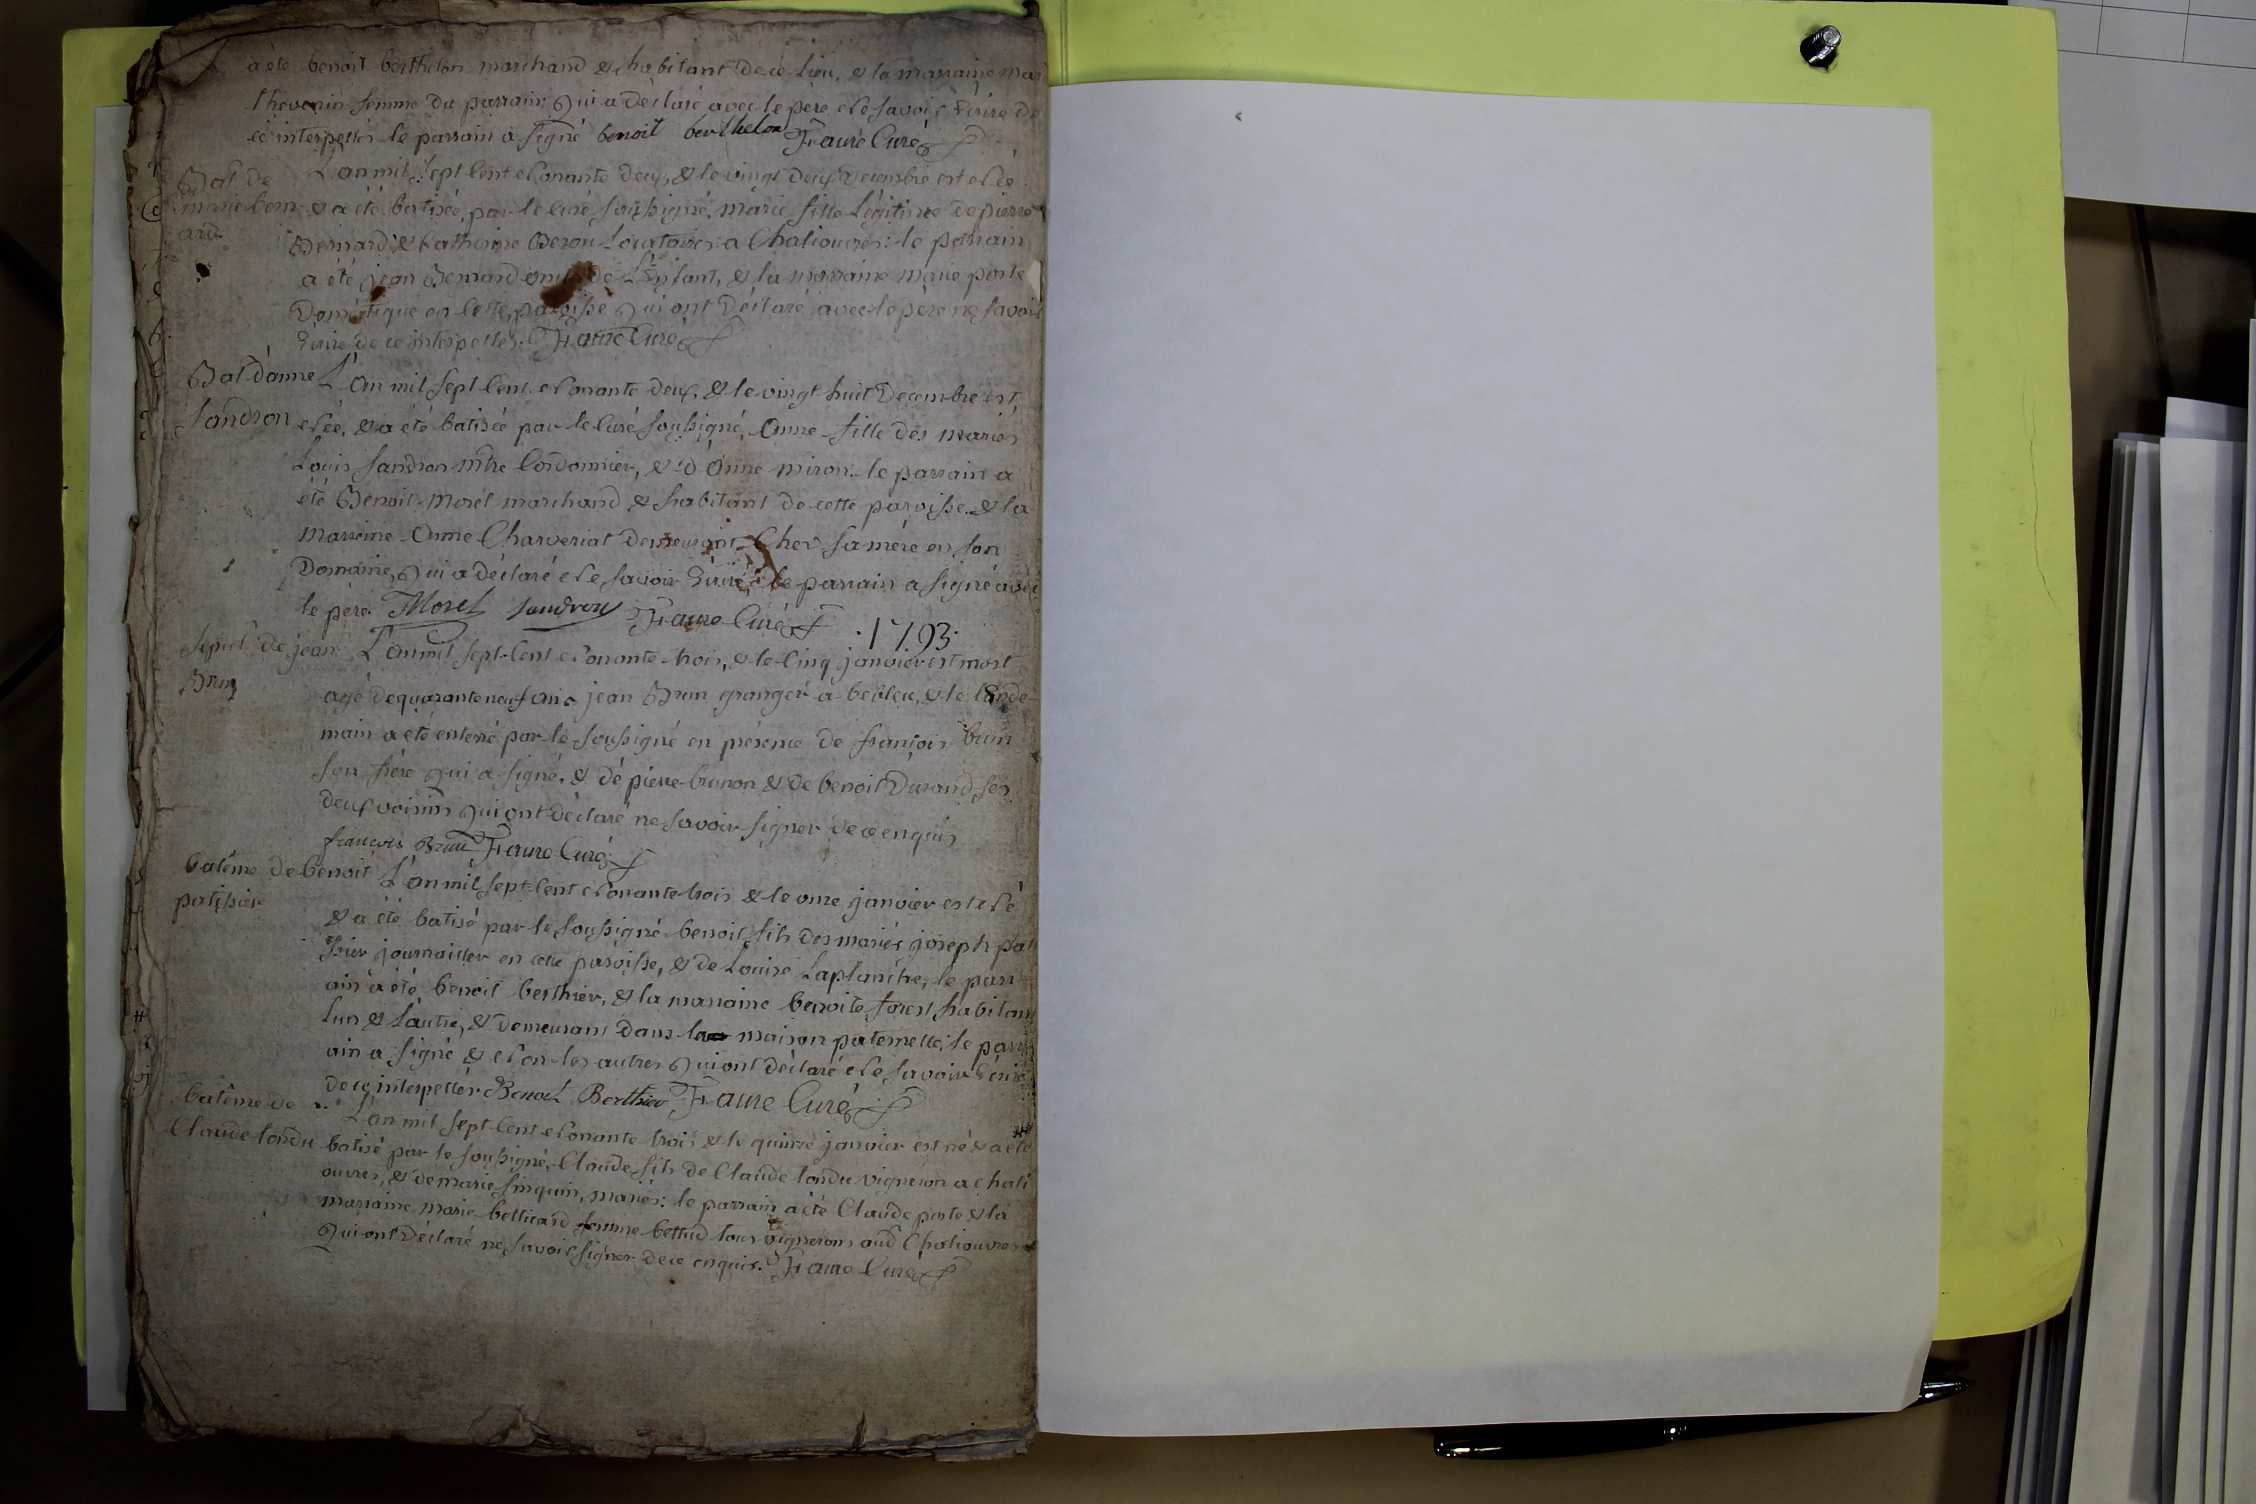 a été benoit berthelon marchand & habitant de ce lieu, & la marraine mar
thevenin femme du parrain, qui a déclaré avec le père ne savoir Ecrire de
ce interpellés le parrain a signé benoit berthelon Faure Curé
Bat. de L'an mil sept cent nonante deux, & le vingt deux decembre est née
marie bern & a été batisée, par le curé soussigné, marie fille légitime de pierre
ard
Bernard & Catherine Deron Locataires a Chaliouvres: le parrain
a été jean Bernard oncle de L'Enfant, & la marraine marie porte
Domestique en cette paroisse qui ont déclaré avec le père ne savoir
Ecrire de ce interpellés. Faure Curé
Bat d'anne L'an mil sept cent nonante deux, & le vingt huit Decembre est
Sandron née, & a été batisée par le curé soussigné, Anne fille des mariés
Louis Sandron mtre Cordonnier, & d'Anne miron: le parrain a
été Benoit Morel marchand & habitant de cette paroisse. & la
Marraine Anne Charveriat demeurant Chez sa mère en son
Domaine, qui a déclaré ne savoir Ecrire & le parrain a signé avec
le père. Morel Sandron Faure Curé
.1793.
Sépult de jean L'an mil sept cent nonante trois, & le cinq janvier est mort
Brun
agé de quarante neuf ans jean Brun granger a beslieu, & le lende
main a été enterré par le soussigné en présence de françois brun
son frère qui a signé, & de pierre brunon & de benoit Durand ses
deux voisins qui ont déclaré ne savoir signer de ce enquis
françois Brun Faure Curé
batême de benoit L'an mil sept cent nonante trois & le onze janvier est né
patissier
& a été batisé par le soussigné benoit fils des mariés joseph pati
ssier journaillier en cette paroisse, & de Louise Laplanche, le parr
ain a été benoit berthier, & la marraine benoite forest habitans
lun & l'autre, & demeurans dans la maison paternelle, le parr
ain a signé & non les autres qui ont déclaré ne savoir Ecrire
de ce interpellés Benoit Berthier Faure Curé
batême de L'an mil sept cent nonante trois & le quinze janvier est né & a été
Claude tondu batisé par le soussigné, Claude fils de Claude tondu vigneron a chali
ouvres, & de marie sinquin, mariés: le parrain a été Claude porte & la
marraine marie bellicard femme bettud tous vignerons aud Chaliouvres
qui ont déclaré ne savoir signer de ce enquis. Faure Curé